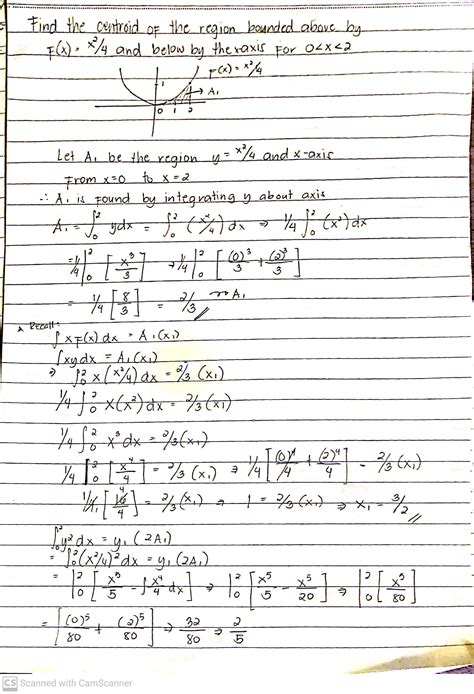 Find the centroid of the region bounded above by
F(x) = x²/4 and below by the x-axis for 0<x<2
F(x) = x²/4
1
→ A₁
0 1 2
Let A₁ be the region y = x²/4 and x-axis
From x=0 to x=2
∴ A₁ is found by integrating y about axis
A₁ = ∫₀² ydx = ∫₀² (x²/4) dx ⇒ 1/4 ∫₀² (x²) dx
= 1/4 |₀² [x³/3] → 1/4 |₀² [(0)³/3 + (2)³/3]
= 1/4 [8/3] = 2/3 → A₁
Recall:
∫ x F(x) dx = A₁(x₁)
∫xy dx = A₁(x₁)
⇒ ∫₀² x (x²/4) dx = 2/3 (x₁)
1/4 ∫₀² x(x²) dx = 2/3(x₁)
1/4 ∫₀² x³ dx = 2/3(x₁)
1/4 |₀² [x⁴/4] = 2/3 (x₁) ⇒ 1/4 [(0)⁴/4 + (2)⁴/4] = 2/3(x₁)
1/4 [16/4] 4 = 2/3(x₁) → 1 = 2/3(x₁) ⇒ x₁ = 3/2
∫₀² y² dx = y₁ (2A₁)
= ∫₀² (x²/4)² dx = y₁ (2A₁)
= |₀² [x⁵/5 - ∫x⁴/4 dx] ⇒ |₀² [x⁵/5 - x⁵/20] ⇒ |₀² [x⁵/80]
= [(0)⁵/80 + (2)⁵/80] ⇒ 32/80 ⇒ 2/5
CS Scanned with CamScanner